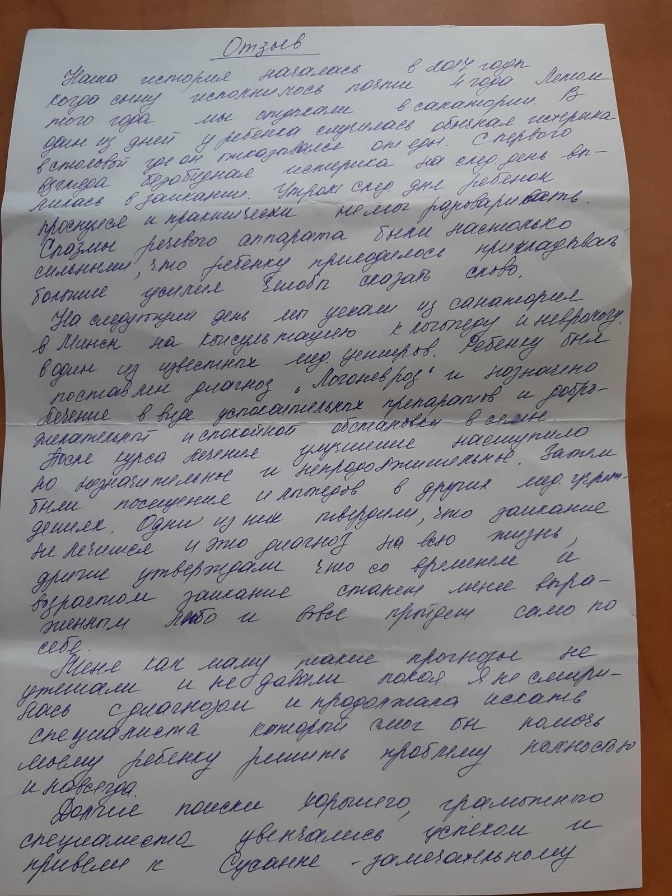 Отзыв
Наша история началась в 2017 году
когда сыну исполнилось почти 4 года Летом
того года мы отдыхали в санатории. В
один из дней у ребёнка случилась обычная истерика
в столовой где он отказывался от еды. С первого
взгляда безобидная истерика на след день вы-
лилась в заикание. Утром след дня ребенок
проснулся и практически не мог разговаривать.
Спазмы речевого аппарата были настолько
сильными, что ребенку приходилось прикладывать
большие усилия чтобы сказать слово.
На следующий день мы уехали из санатория
в Минск на консультацию к логопеду и неврологу.
в один из известных мед центров. Ребенку был
поставлен диагноз "Логоневроз" и назначено
лечение в виде успокоительных препаратов и добро-
желательной и спокойной обстановки в семье.
После курса лечения улучшение наступило
но незначительное и непродолжительное. Затем
были посещения и логопедов в других мед учреж-
дениях. Одни из них твердили, что заикание
не лечится и это диагноз на всю жизнь,
другие утверждали что со временем и
возрастом заикание станет менее выра-
женным либо и вовсе пройдет само по
себе.
Меня как маму такие прогнозы не
утешали и не давали покоя. Я не смири-
лась с диагнозом и продолжала искать
специалиста который смог бы помочь
моему ребенку решить проблему полностью
и навсегда.
Долгие поиски хорошего, грамотного
специалиста увенчались успехом и
привели к Сусанне - замечательному